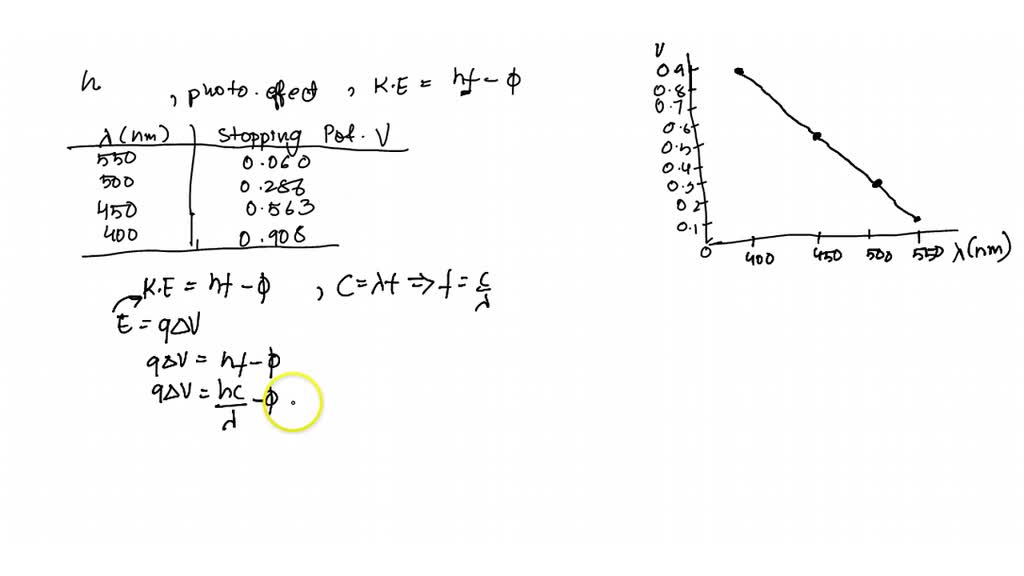 h , photo.effect , K.E = hf - ϕ
λ(nm) Stopping Pot. V
550 0.060
500 0.286
450 0.563
400 0.908
K.E = hf - ϕ , C = λf ⇒ f = c/λ
E = qΔV
qΔV = hf - ϕ
qΔV = hc/λ - ϕ .
V
0.9
0.8
0.7
0.6
0.5
0.4
0.3
0.2
0.1
0 400 450 500 550 λ(nm)